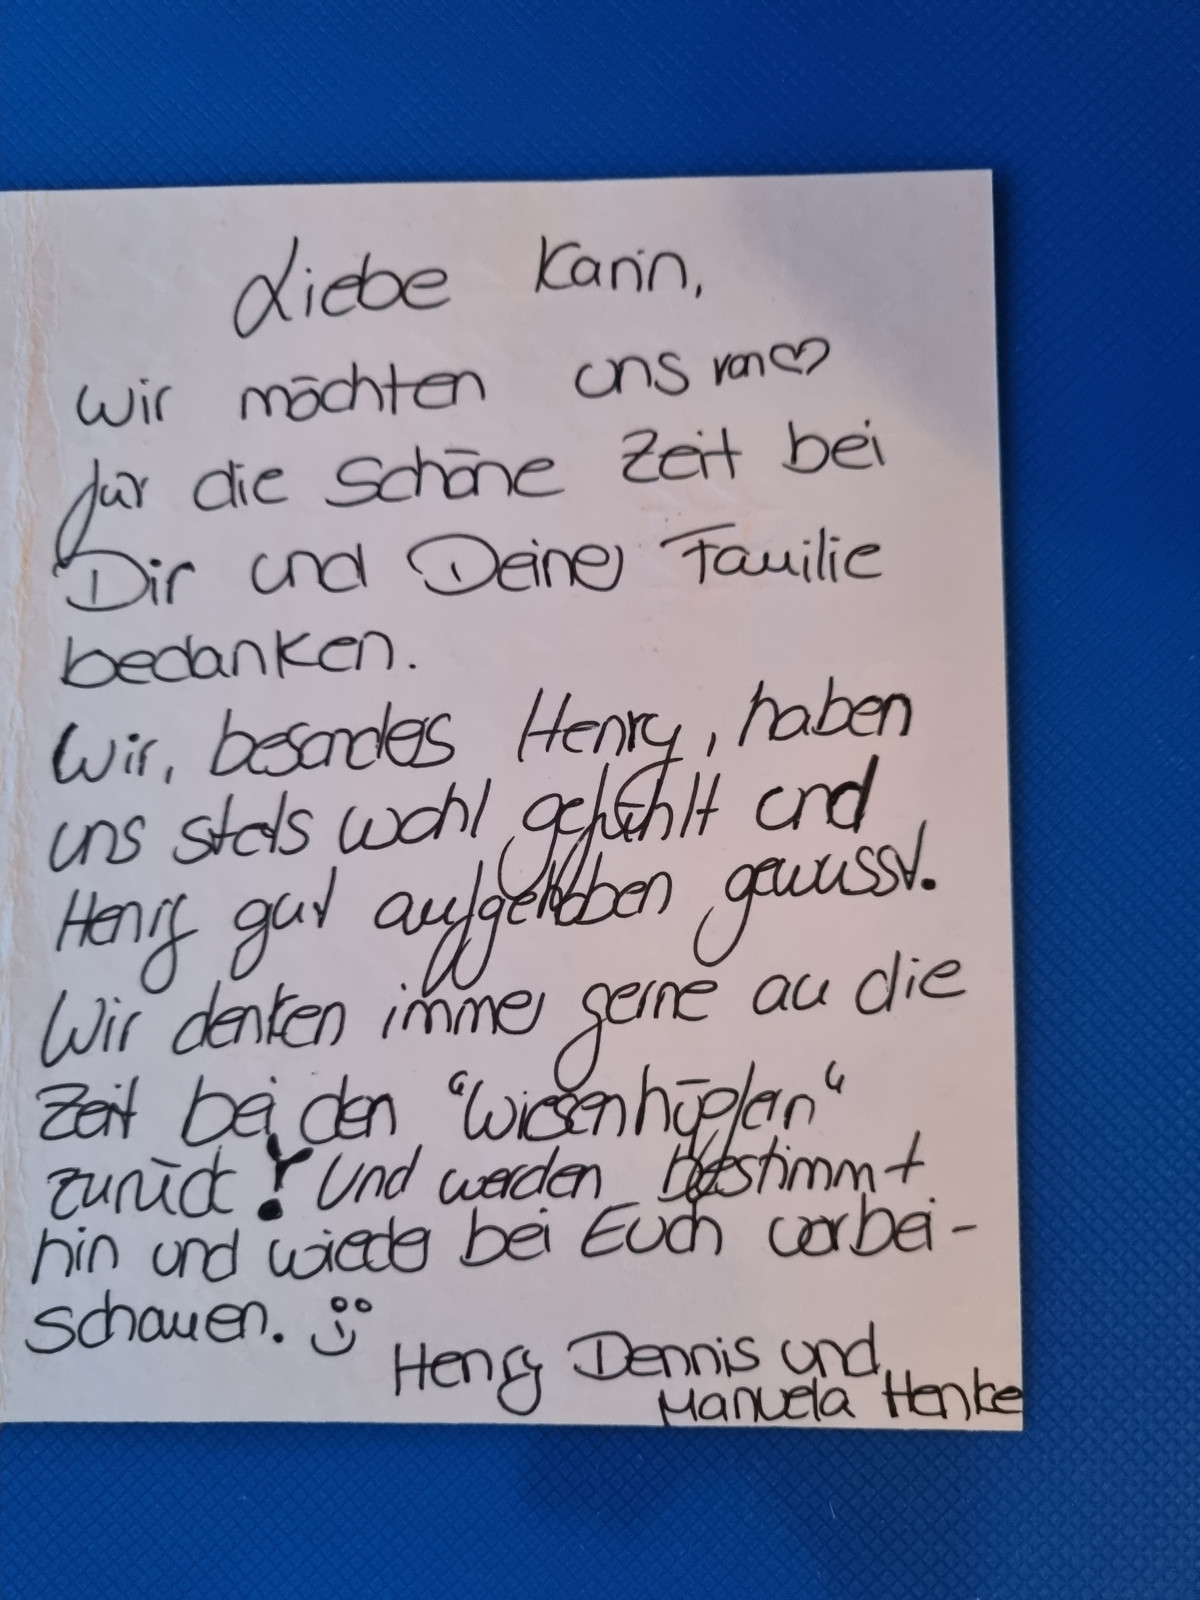 Liebe Karin,
wir möchten uns von ♡
für die schöne Zeit bei
Dir und Deiner Familie
bedanken.
Wir, besonders Henry, haben
uns stets wohl gefühlt und
Henry gut aufgehoben gewusst.
Wir denken immer gerne an die
Zeit bei den "Wiesenhüpfern"
zurück! Und werden bestimmt
hin und wieder bei Euch vorbei-
schauen. ö
Henry Dennis und
Manuela Henke